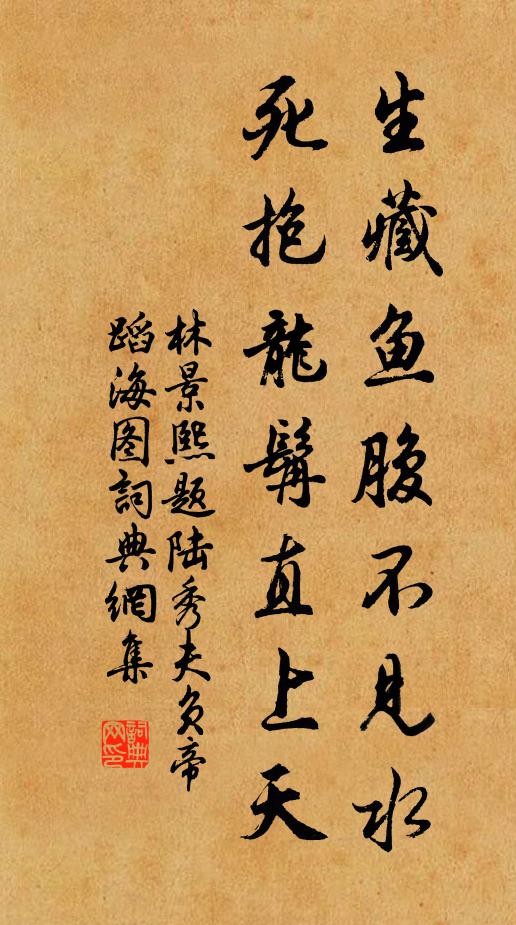 生藏鱼腹不见水
死抱龍髯直上天
林景熙题陆秀夫负帝
蹈海图詞典網集
詞典网印